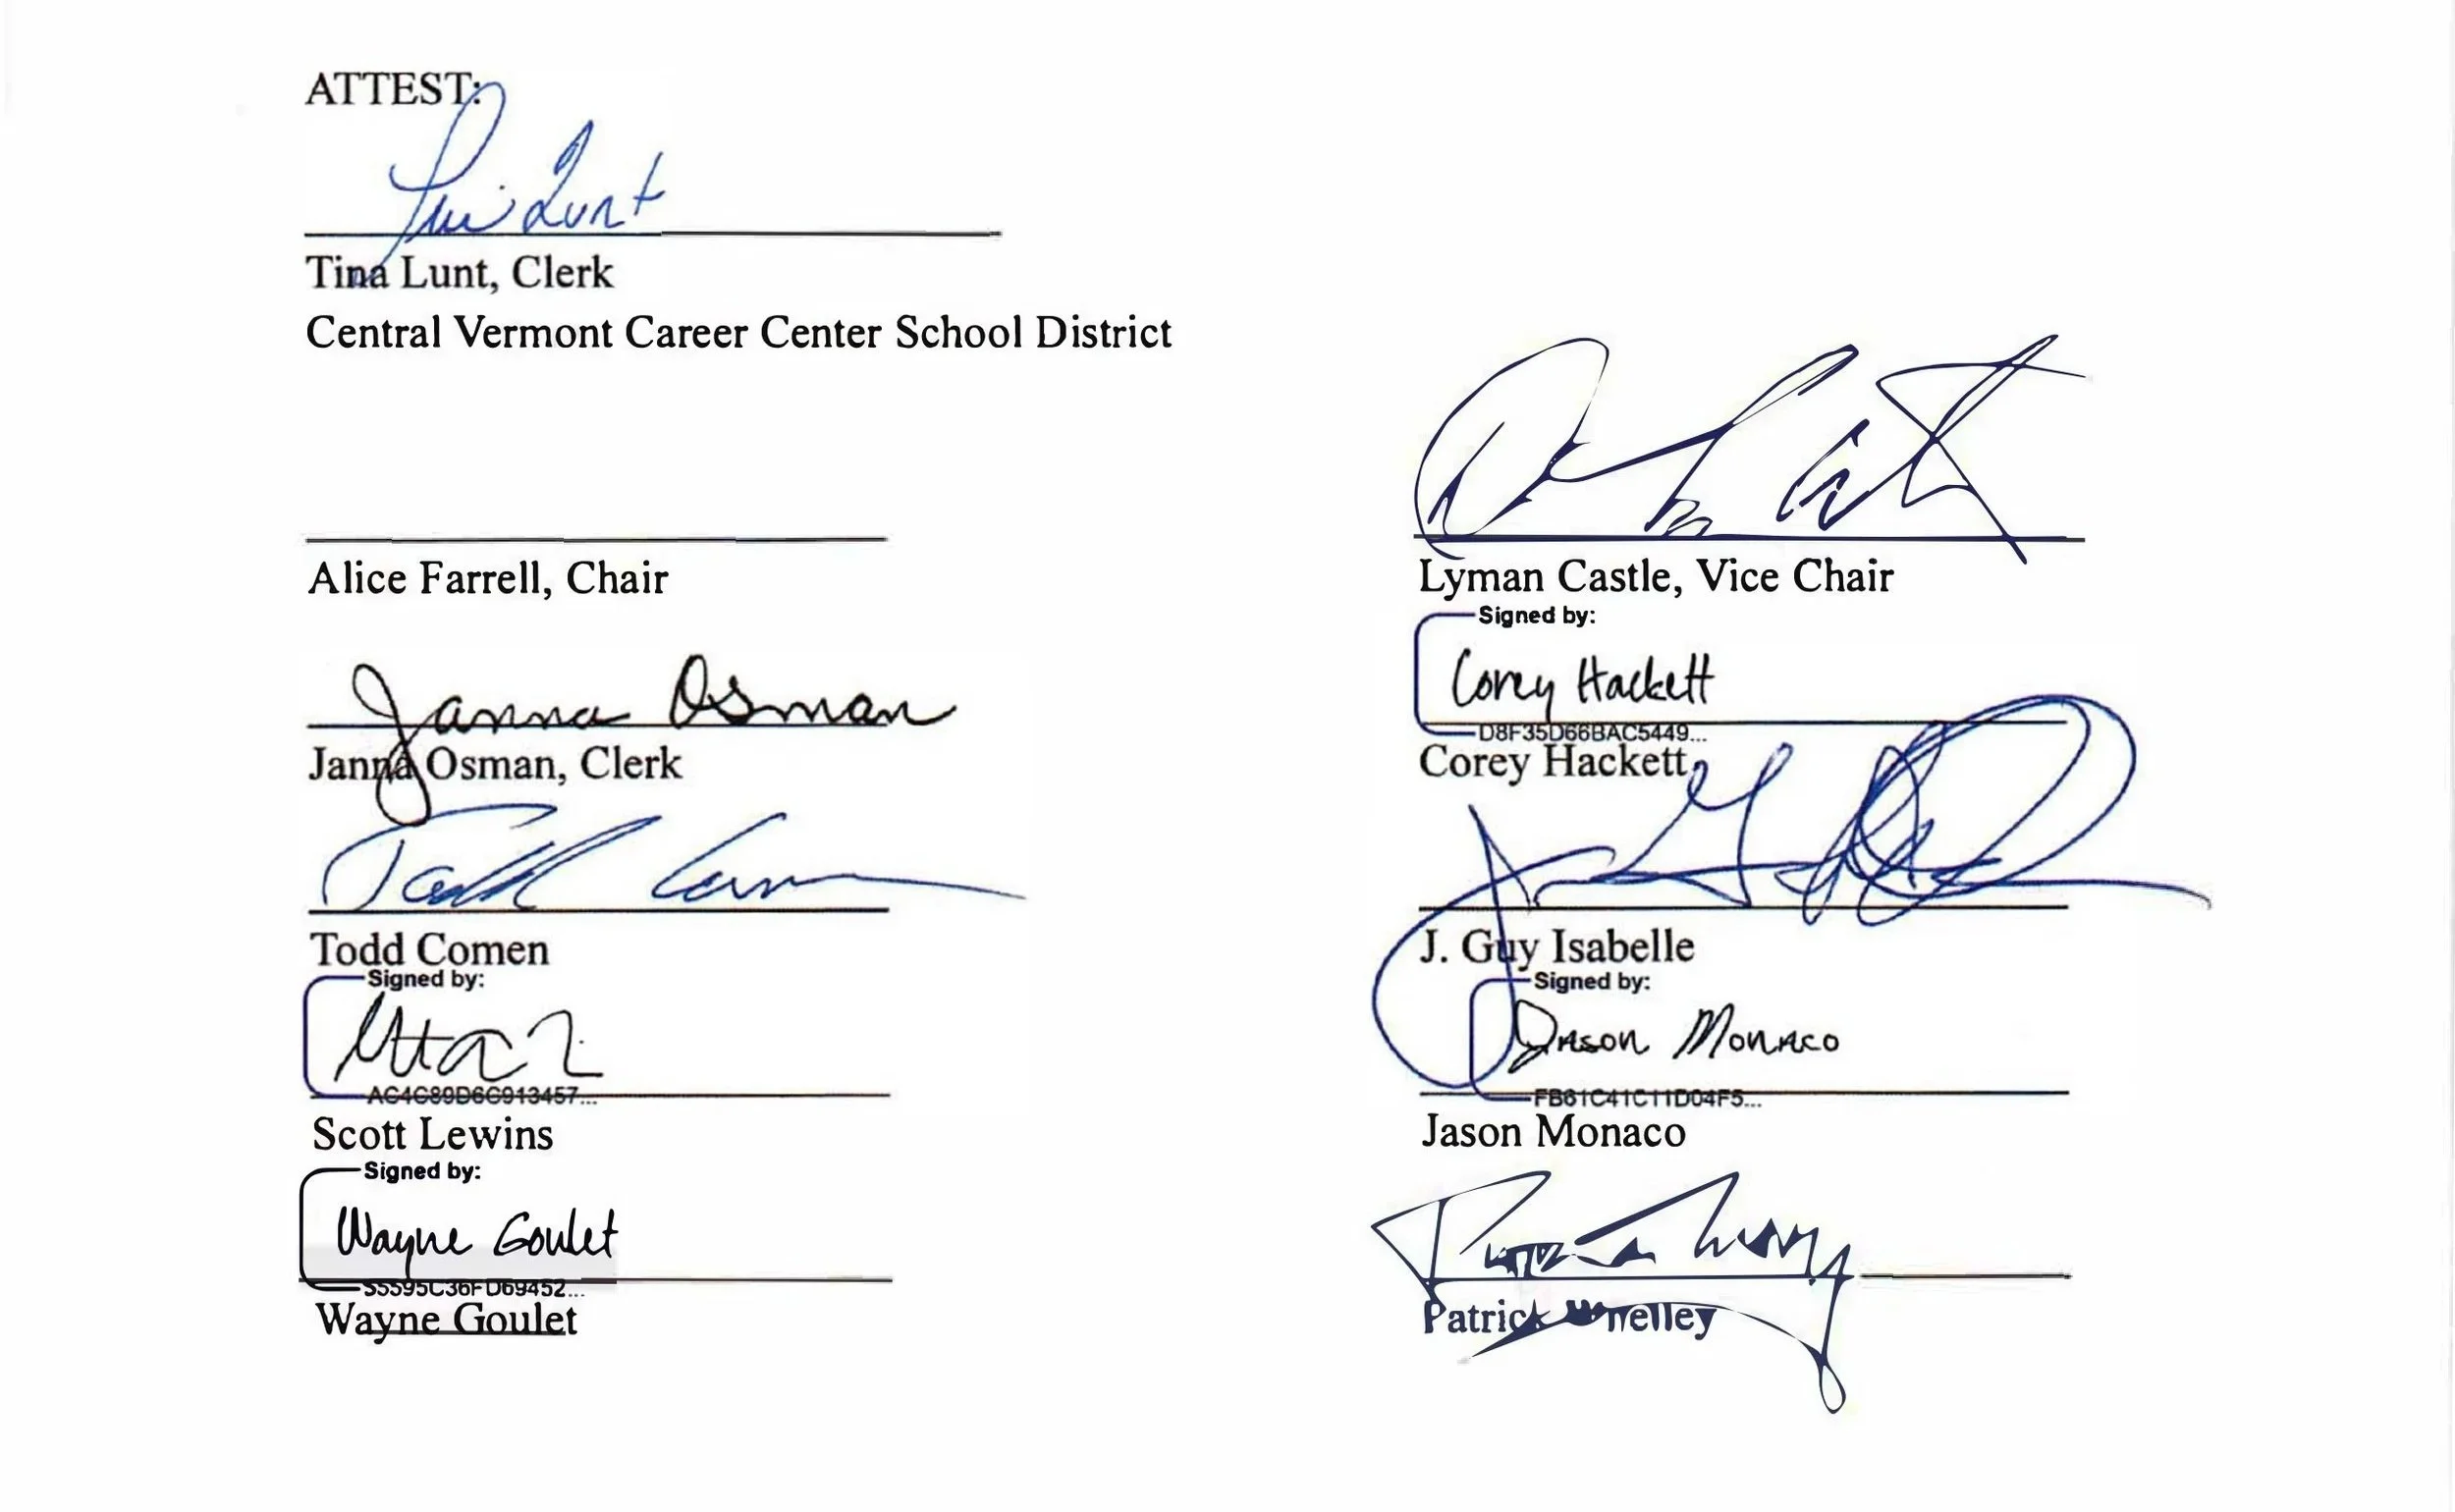 ATTEST:
Tina Lunt
Tina Lunt, Clerk
Central Vermont Career Center School District
Alice Farrell, Chair
Lyman Castle, Vice Chair
Signed by:
Corey Hackett
D8F35D66BAC5449...
Corey Hackett
Janna Osman
Janna Osman, Clerk
Todd Comen
J. Guy Isabelle
Signed by:
AC4C89D6C913457...
Scott Lewins
Signed by:
Jason Monaco
FB61C41C11D04F5...
Jason Monaco
Signed by:
Wayne Goulet
Wayne Goulet
Patrick Whelley